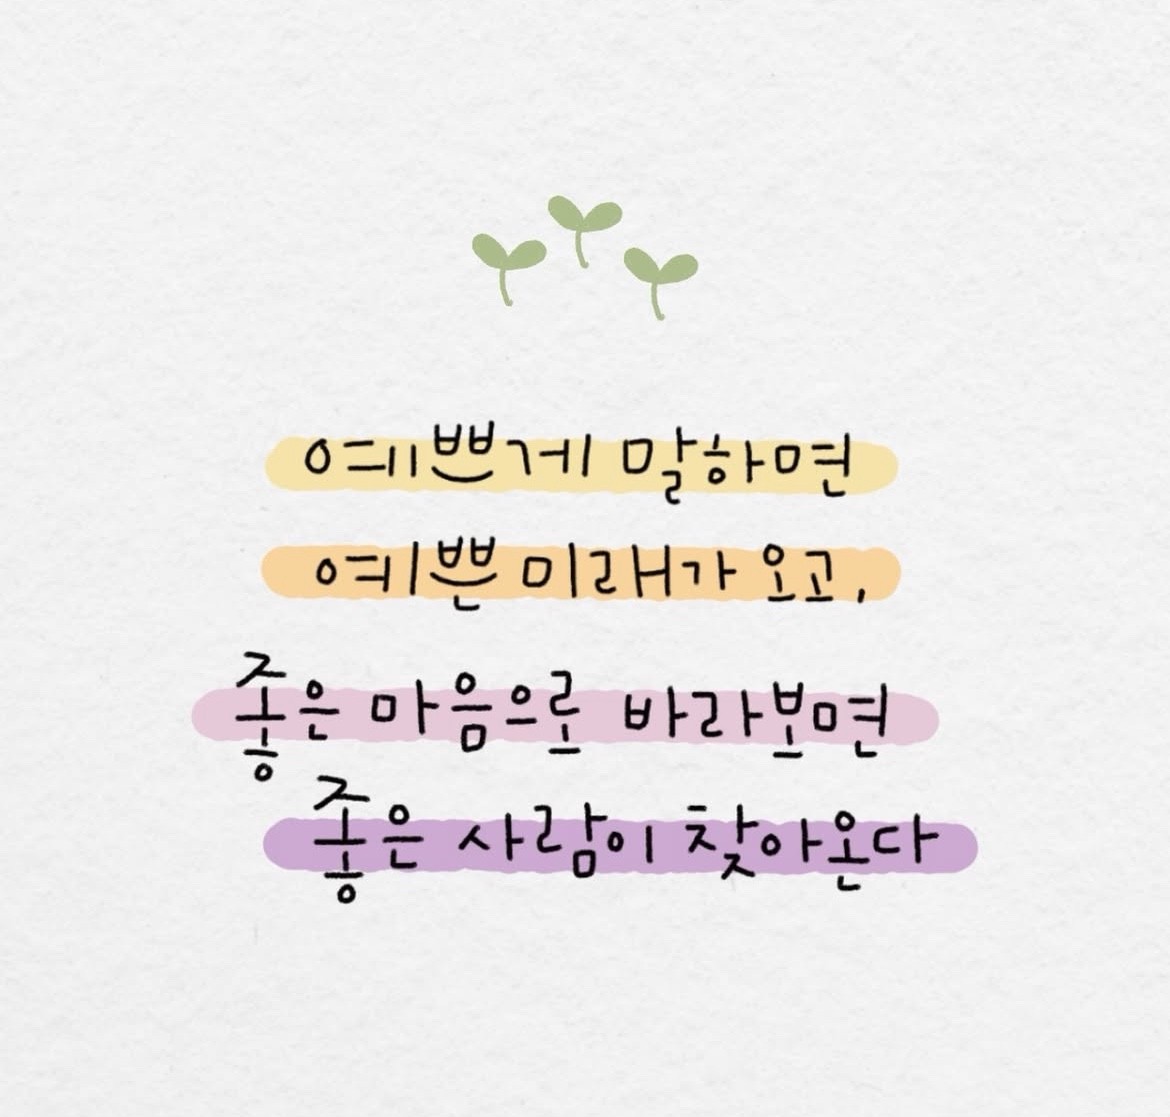 예쁘게 말하면
예쁜 미래가 오고,
좋은 마음으로 바라보면
좋은 사람이 찾아온다